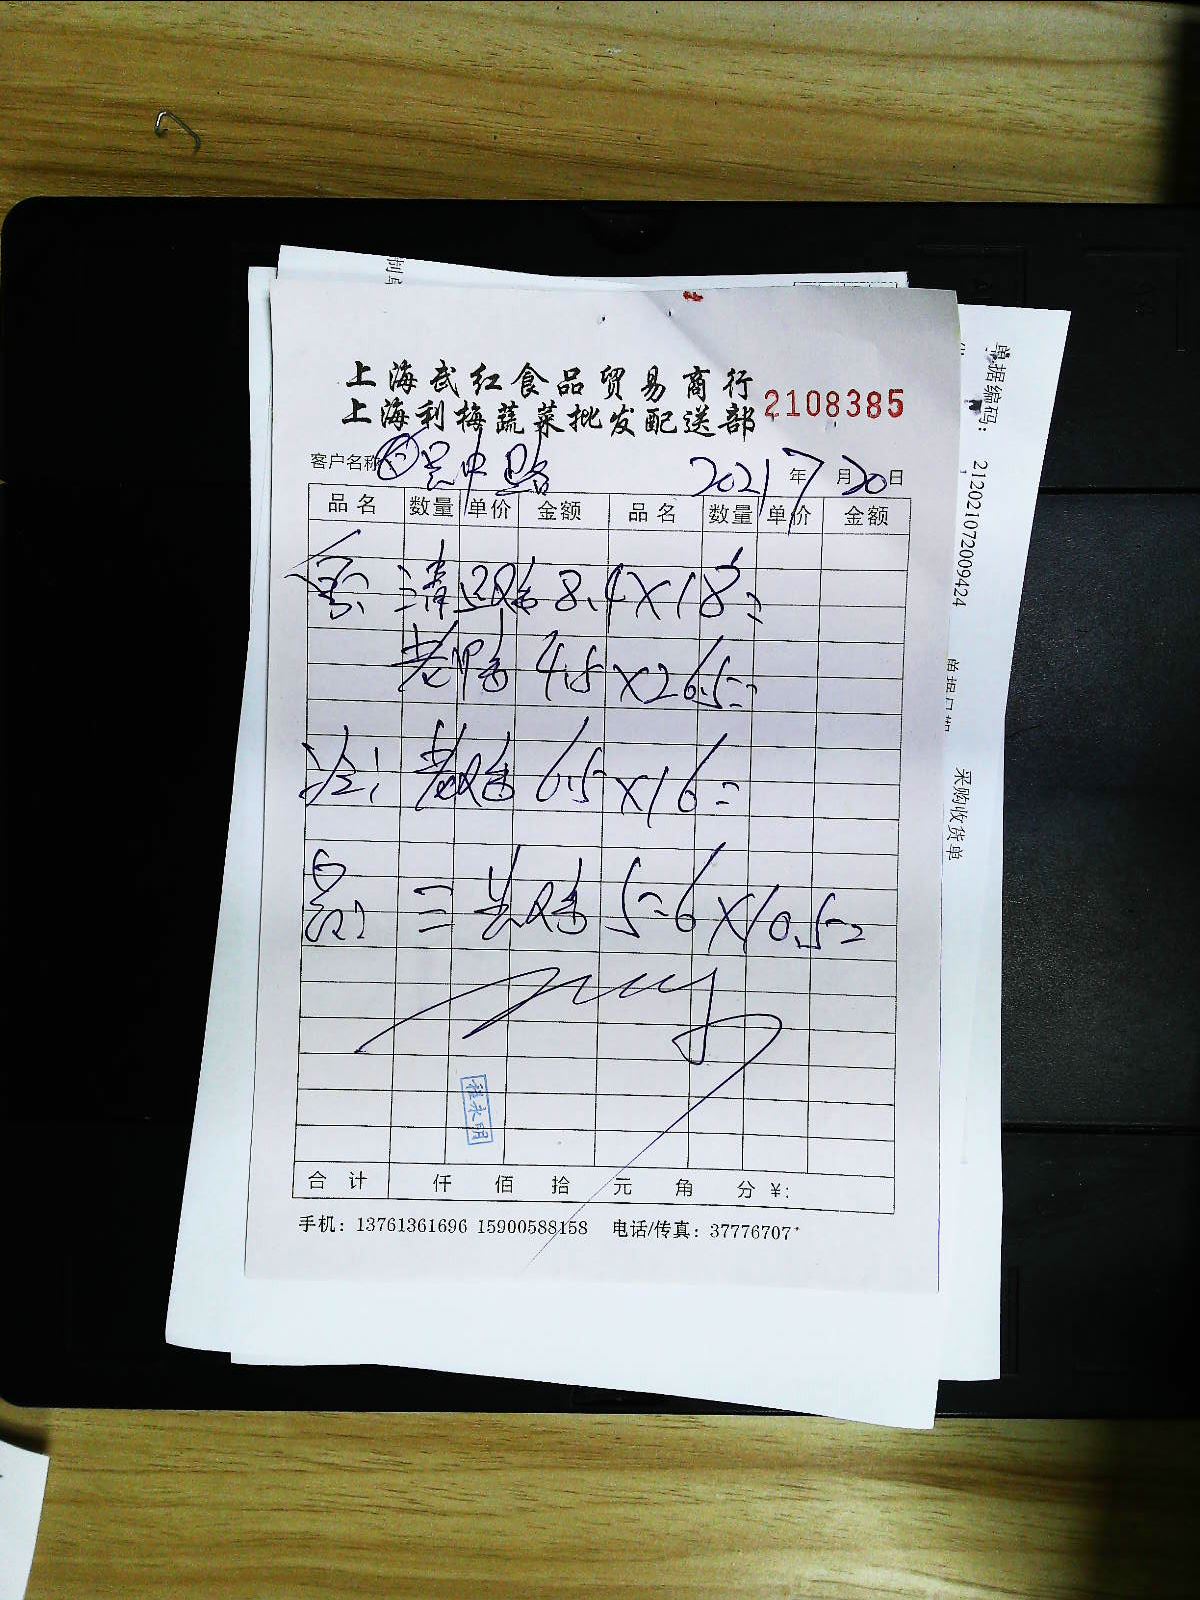 上海武红食品贸易商行
上海利梅蔬菜批发配送部
2108385
客户名称 吴中路 2021年7月20日
品名 数量 单价 金额 品名 数量 单价 金额
清远鸡 8.4×18=
老鸭 4.5×26.5=
冷: 老鸡 6.5×16=
三黄鸡 5=6×10.5=
合计 仟 佰 拾 元 角 分 ¥:
手机: 13761361696 15900588158 电话/传真: 37776707
单据编码: 212021072009424
采购收货单